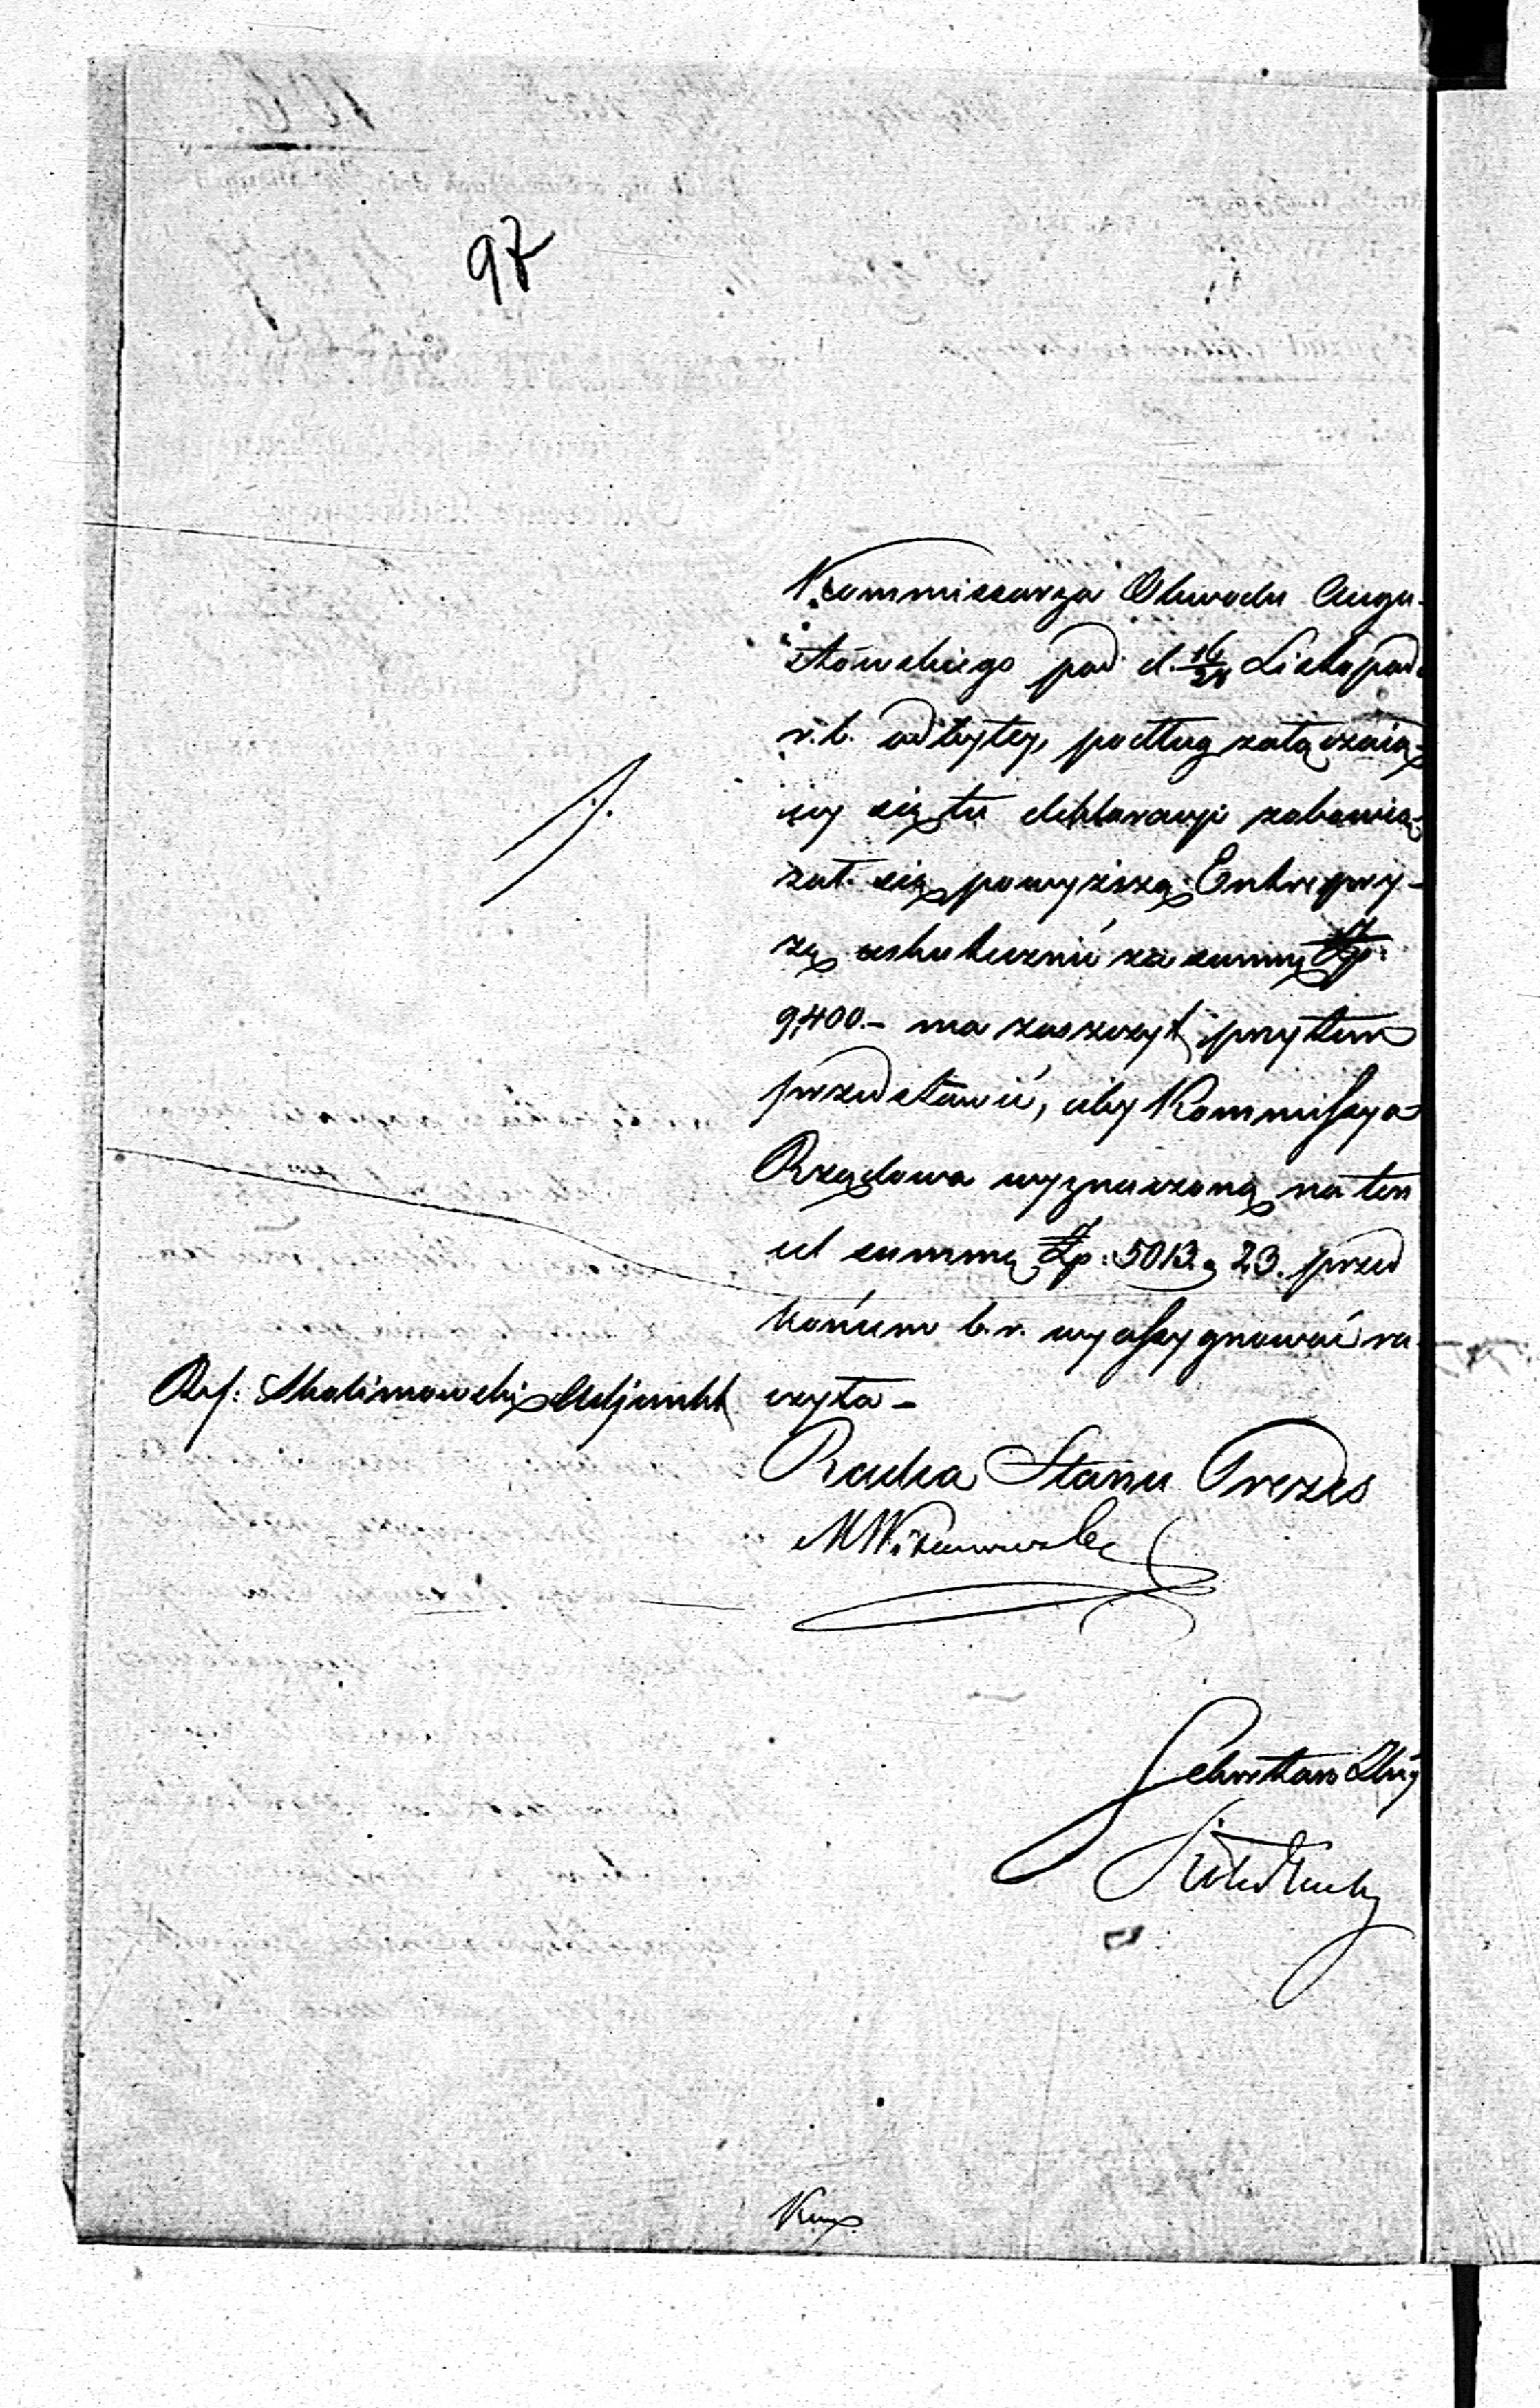 97
Kommissarza Obwodu Augu-
stowskiego pod d. 16/28 Listopada
r. b. odbytey, podług załączaią-
cey się tu deklaracyi zobowią-
zał się powyższą Entrepry-
zę uskutecznić za summę Zp:
9,400.- ma zaszczyt przytem
przedstawić, aby Kommissya
Rządowa wyznaczoną na ten
cel summę Zp: 5013 g 23. przed
końcem b. r. wyassygnować ra-
czyła -
Ref: Skalimowski Adjunkt
Radca Stanu Prezes
Sekretarz